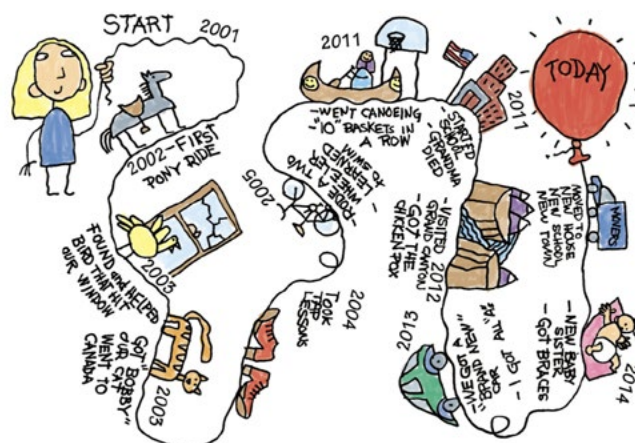 START
2001
2002-FIRST
PONY RIDE
2003
FOUND and HELPED
BIRD THAT HIT
OUR WINDOW
2003
GOT "BOBBY"
OUR CAT
WENT TO
CANADA
2004
TOOK
TAP
LESSONS
2005
-RODE A TWO
WHEELER
-LEARNED
TO SWIM
2011
-WENT CANOEING
-"10" BASKETS IN
A ROW
2011
-STARTED
SCHOOL
-GRANDMA
DIED
-VISITED 2012
GRAND CANYON
-GOT THE
CHICKEN POX
2013
-WE GOT A
"BRAND NEW"
CAR
-I GOT
ALL "A's"
2014
-NEW BABY
SISTER
-GOT BRACES
MOVED TO
NEW HOUSE
NEW SCHOOL
NEW TOWN
MOVERS
TODAY